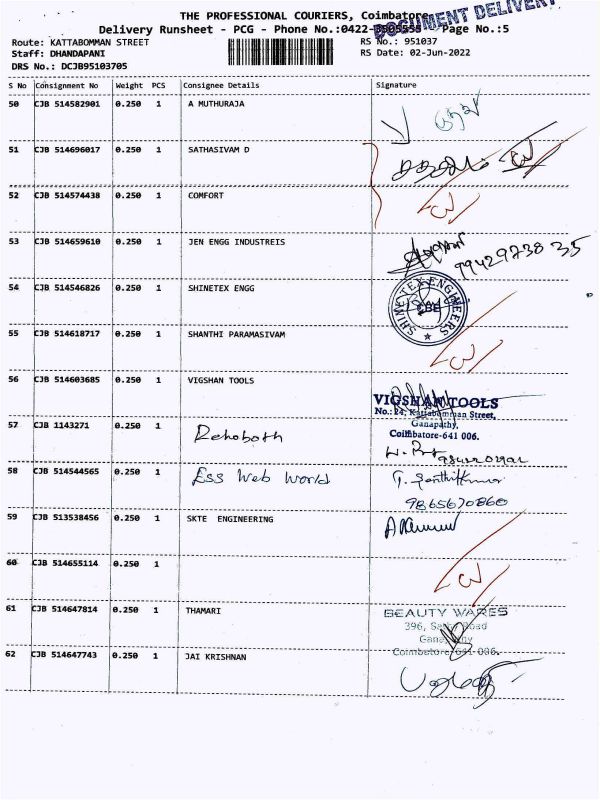 THE PROFESSIONAL COURIERS, Coimbatore
DOCUMENT DELIVERY
Delivery Runsheet - PCG - Phone No.:0422-3505555 Page No.:5
Route: KATTABOMMAN STREET RS No.: 951037
Staff: DHANDAPANI RS Date: 02-Jun-2022
DRS No.: DCJB95103705
S No Consignment No Weight PCS Consignee Details Signature
50 CJB 514582901 0.250 1 A MUTHURAJA
51 CJB 514696017 0.250 1 SATHASIVAM D
52 CJB 514574438 0.250 1 COMFORT
53 CJB 514659610 0.250 1 JEN ENGG INDUSTREIS
9942973835
54 CJB 514546826 0.250 1 SHINETEX ENGG
SHINETEX ENGINEERS
CBE
55 CJB 514618717 0.250 1 SHANTHI PARAMASIVAM
56 CJB 514603685 0.250 1 VIGSHAN TOOLS
VIGSHAN TOOLS
No.: 24, Kattabomman Street,
Ganapathy,
Coimbatore-641 006.
57 CJB 1143271 0.250 1 Rehoboth
58 CJB 514544565 0.250 1 Ess Web World
9865670860
59 CJB 513538456 0.250 1 SKTE ENGINEERING
60 CJB 514655114 0.250 1
61 CJB 514647814 0.250 1 THAMARI
BEAUTY WARES
396, Road
Coimbatore-641 006.
62 CJB 514647743 0.250 1 JAI KRISHNAN